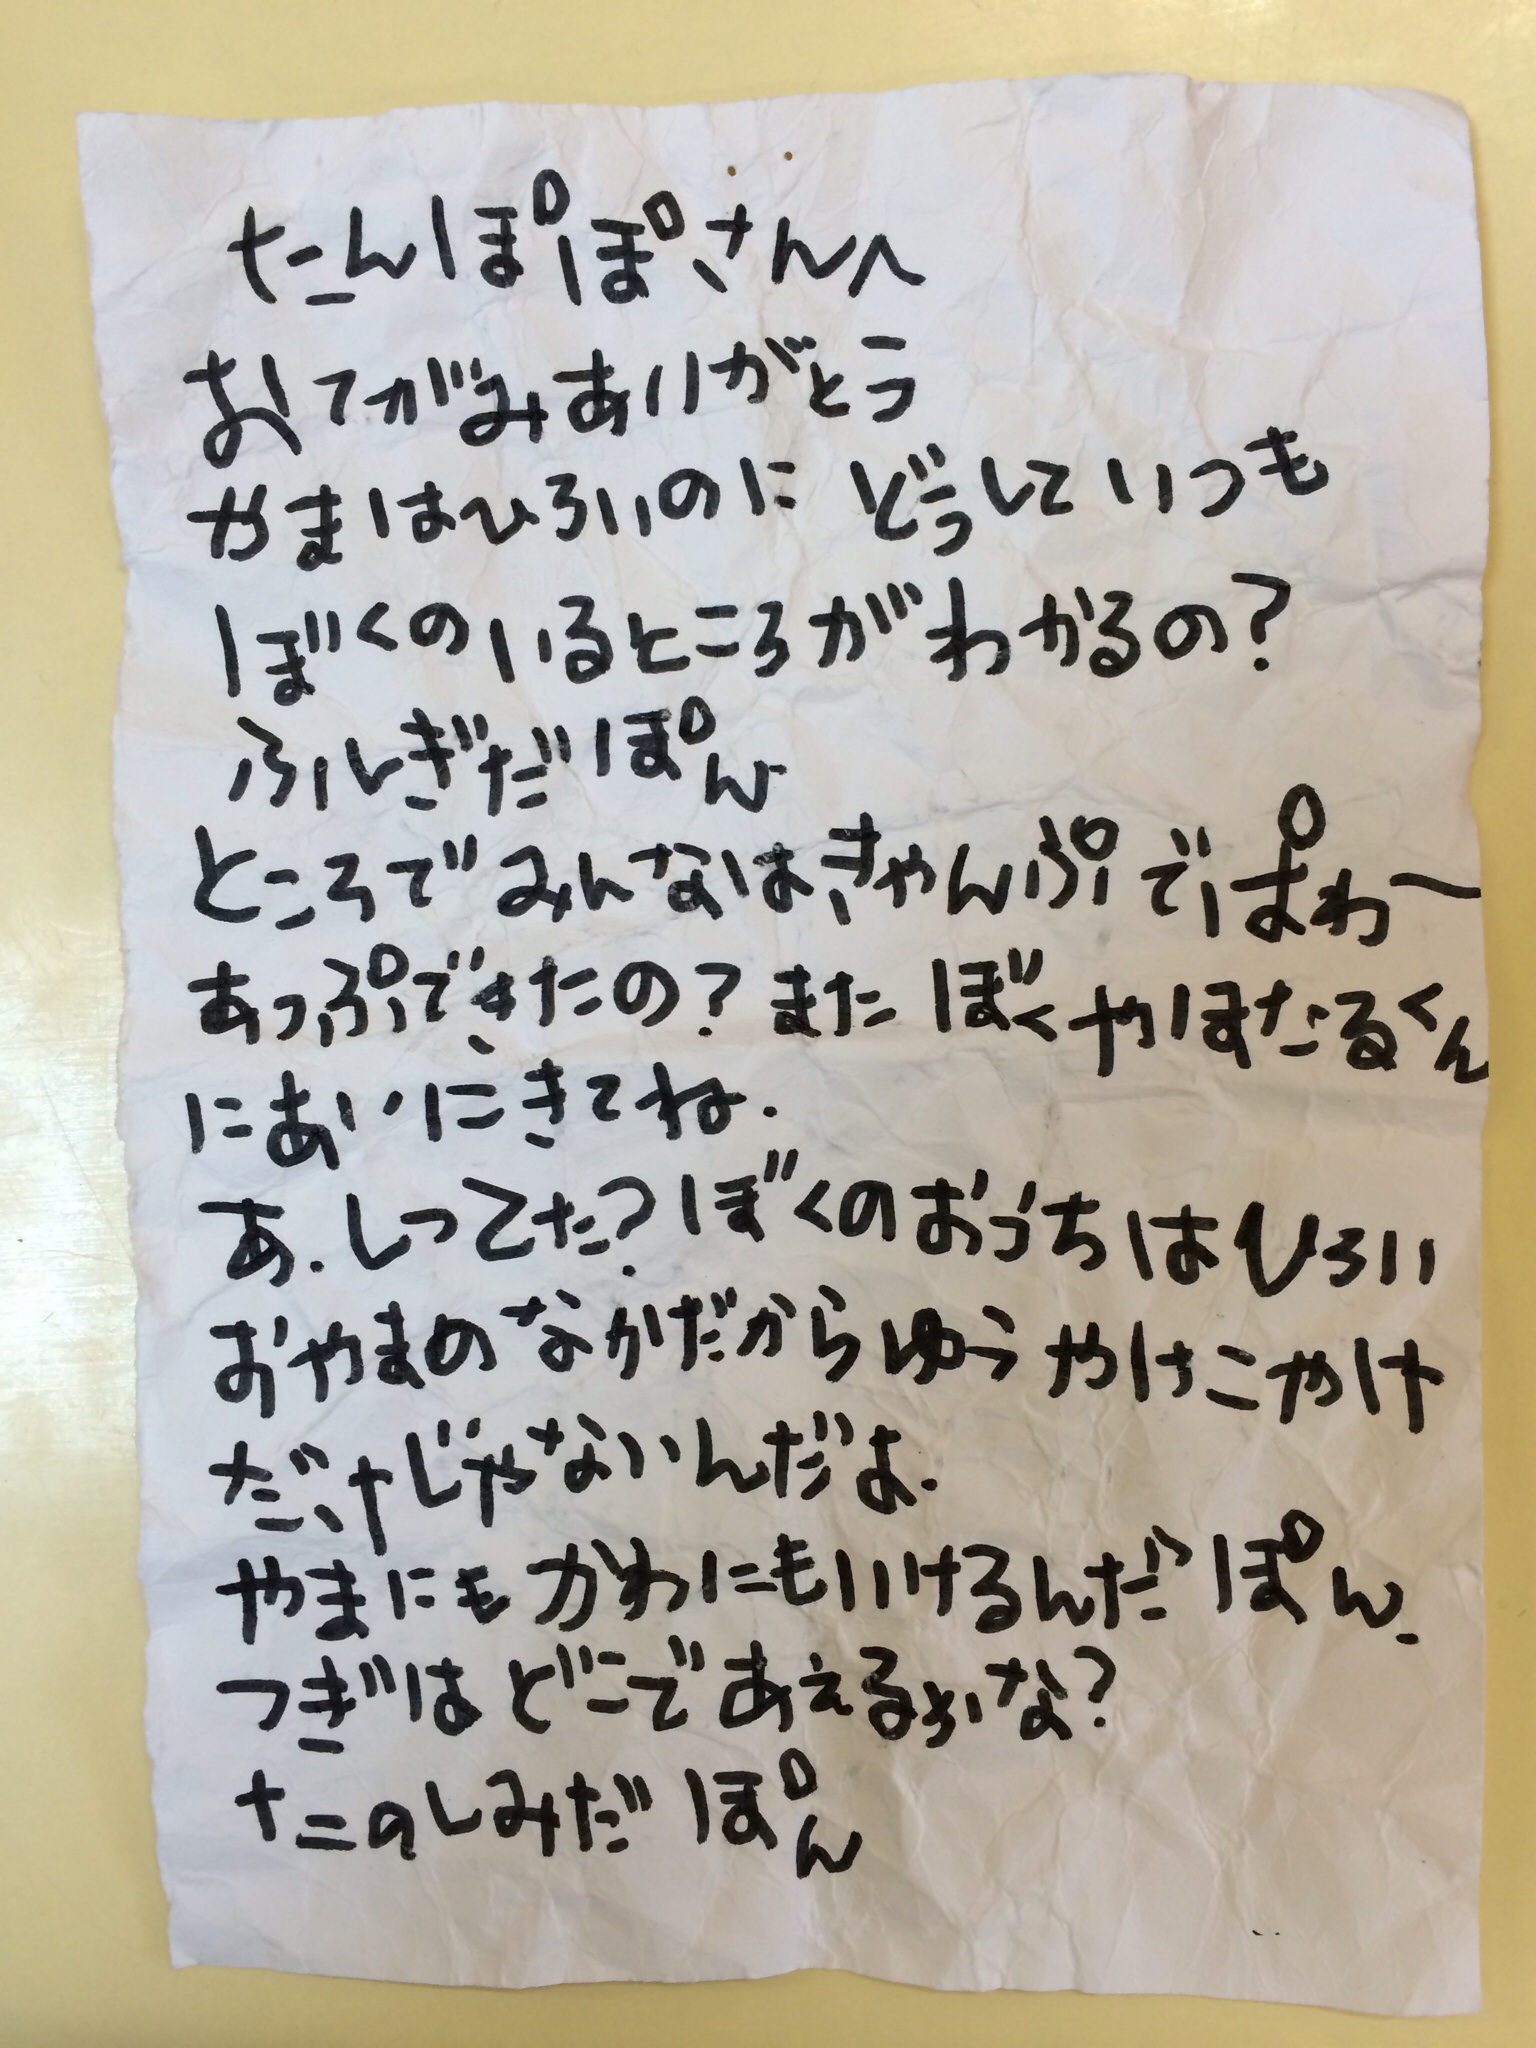 たんぽぽさんへ
おてがみありがとう
やまはひろいのに どうしていつも
ぼくのいるところがわかるの?
ふしぎだぽん
ところでみんなは、きゃんぷでぱわー
あっぷできたの? また ぼくやほたるくん
にあいにきてね.
あ.しってた?ぼくのおうちはひろい
おやまのなかだからゆうやけこやけ
だけじゃないんだよ.
やまにもかわにもいけるんだぽん.
つぎはどこであえるかな?
たのしみだぽん